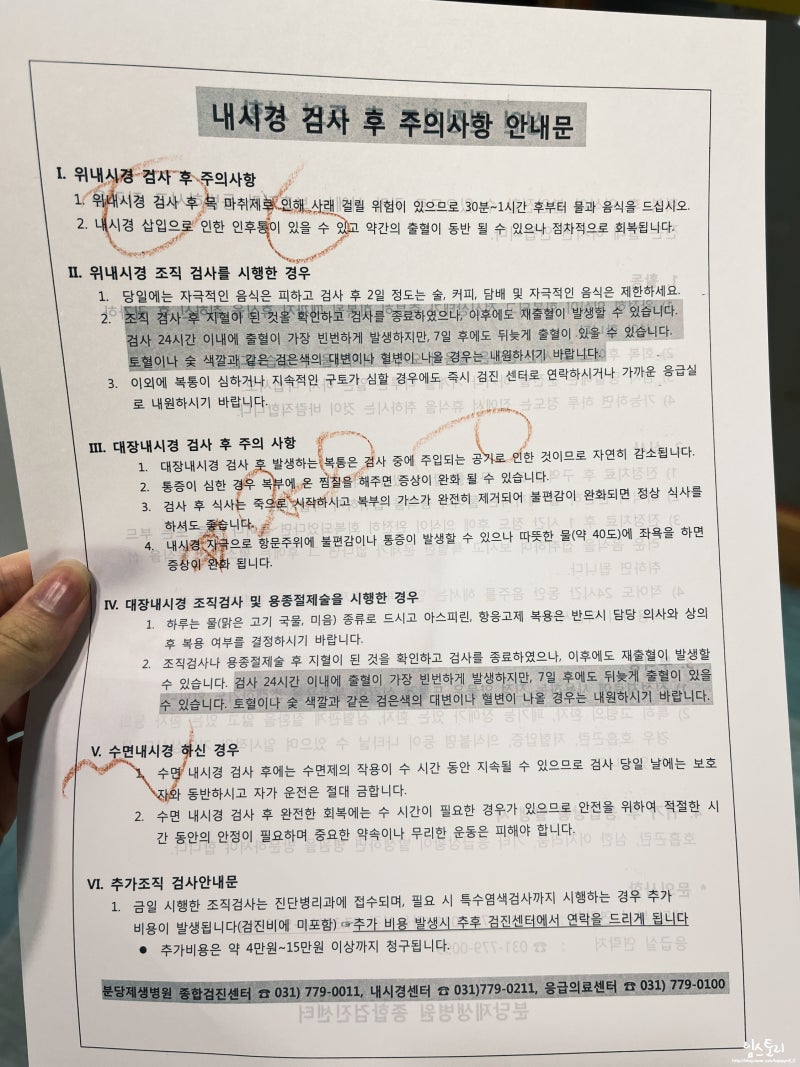 내시경 검사 후 주의사항 안내문
I. 위내시경 검사 후 주의사항
1. 위내시경 검사 후 목 마취제로 인해 사래 걸릴 위험이 있으므로 30분~1시간 후부터 물과 음식을 드십시오.
2. 내시경 삽입으로 인한 인후통이 있을 수 있고 약간의 출혈이 동반 될 수 있으나 점차적으로 회복됩니다.
II. 위내시경 조직 검사를 시행한 경우
1. 당일에는 자극적인 음식은 피하고 검사 후 2일 정도는 술, 커피, 담배 및 자극적인 음식은 제한하세요.
2. 조직 검사 후 지혈이 된 것을 확인하고 검사를 종료하였으나, 이후에도 재출혈이 발생할 수 있습니다.
검사 24시간 이내에 출혈이 가장 빈번하게 발생하지만, 7일 후에도 뒤늦게 출혈이 있을 수 있습니다.
토혈이나 숯 색깔과 같은 검은색의 대변이나 혈변이 나올 경우는 내원하시기 바랍니다.
3. 이외에 복통이 심하거나 지속적인 구토가 심할 경우에도 즉시 검진 센터로 연락하시거나 가까운 응급실
로 내원하시기 바랍니다.
III. 대장내시경 검사 후 주의 사항
1. 대장내시경 검사 후 발생하는 복통은 검사 중에 주입되는 공기로 인한 것이므로 자연히 감소됩니다.
2. 통증이 심한 경우 복부에 온 찜질을 해주면 증상이 완화 될 수 있습니다.
3. 검사 후 식사는 죽으로 시작하시고 복부의 가스가 완전히 제거되어 불편감이 완화되면 정상 식사를
하셔도 좋습니다.
4. 내시경 자극으로 항문주위에 불편감이나 통증이 발생할 수 있으나 따뜻한 물(약 40도)에 좌욕을 하면
증상이 완화 됩니다.
IV. 대장내시경 조직검사 및 용종절제술을 시행한 경우
1. 하루는 물(맑은 고기 국물, 미음) 종류로 드시고 아스피린, 항응고제 복용은 반드시 담당 의사와 상의
후 복용 여부를 결정하시기 바랍니다.
2. 조직검사나 용종절제술 후 지혈이 된 것을 확인하고 검사를 종료하였으나, 이후에도 재출혈이 발생할
수 있습니다. 검사 24시간 이내에 출혈이 가장 빈번하게 발생하지만, 7일 후에도 뒤늦게 출혈이 있을
수 있습니다. 토혈이나 숯 색깔과 같은 검은색의 대변이나 혈변이 나올 경우는 내원하시기 바랍니다.
V. 수면내시경 하신 경우
1. 수면 내시경 검사 후에는 수면제의 작용이 수 시간 동안 지속될 수 있으므로 검사 당일 날에는 보호
자와 동반하시고 자가 운전은 절대 금합니다.
2. 수면 내시경 검사 후 완전한 회복에는 수 시간이 필요한 경우가 있으므로 안전을 위하여 적절한 시
간 동안의 안정이 필요하며 중요한 약속이나 무리한 운동은 피해야 합니다.
VI. 추가조직 검사안내문
1. 금일 시행한 조직검사는 진단병리과에 접수되며, 필요 시 특수염색검사까지 시행하는 경우 추가
비용이 발생됩니다(검진비에 미포함) ☞추가 비용 발생시 추후 검진센터에서 연락을 드리게 됩니다
● 추가비용은 약 4만원~15만원 이상까지 청구됩니다.
분당제생병원 종합검진센터 ☎ 031) 779-0011, 내시경센터 ☎ 031)779-0211, 응급의료센터 ☎ 031) 779-0100
임스토리